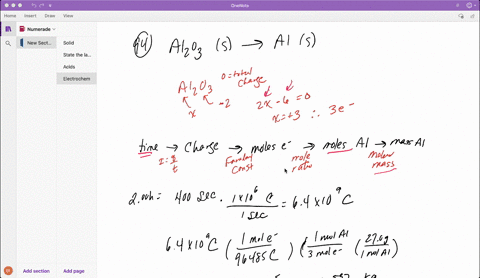 OneNote
Home Insert Draw View
Numerade
New Sect...
Solid
State the la...
Acids
Electrochem
Add section
Add page
94) Al2O3 (s) → Al (s)
Al2O3 0 = total charge
x -2
2x - 6 = 0
x = +3 ∴ 3e-
time → Charge → moles e- → moles Al → mass Al
I = q/t Faraday Const mole ratio molar mass
400 sec · 1×10^6 C / 1 sec = 6.4×10^9 C
6.4×10^9 C (1 mol e- / 96485 C) (1 mol Al / 3 mol e-) (27.0g / 1 mol Al)